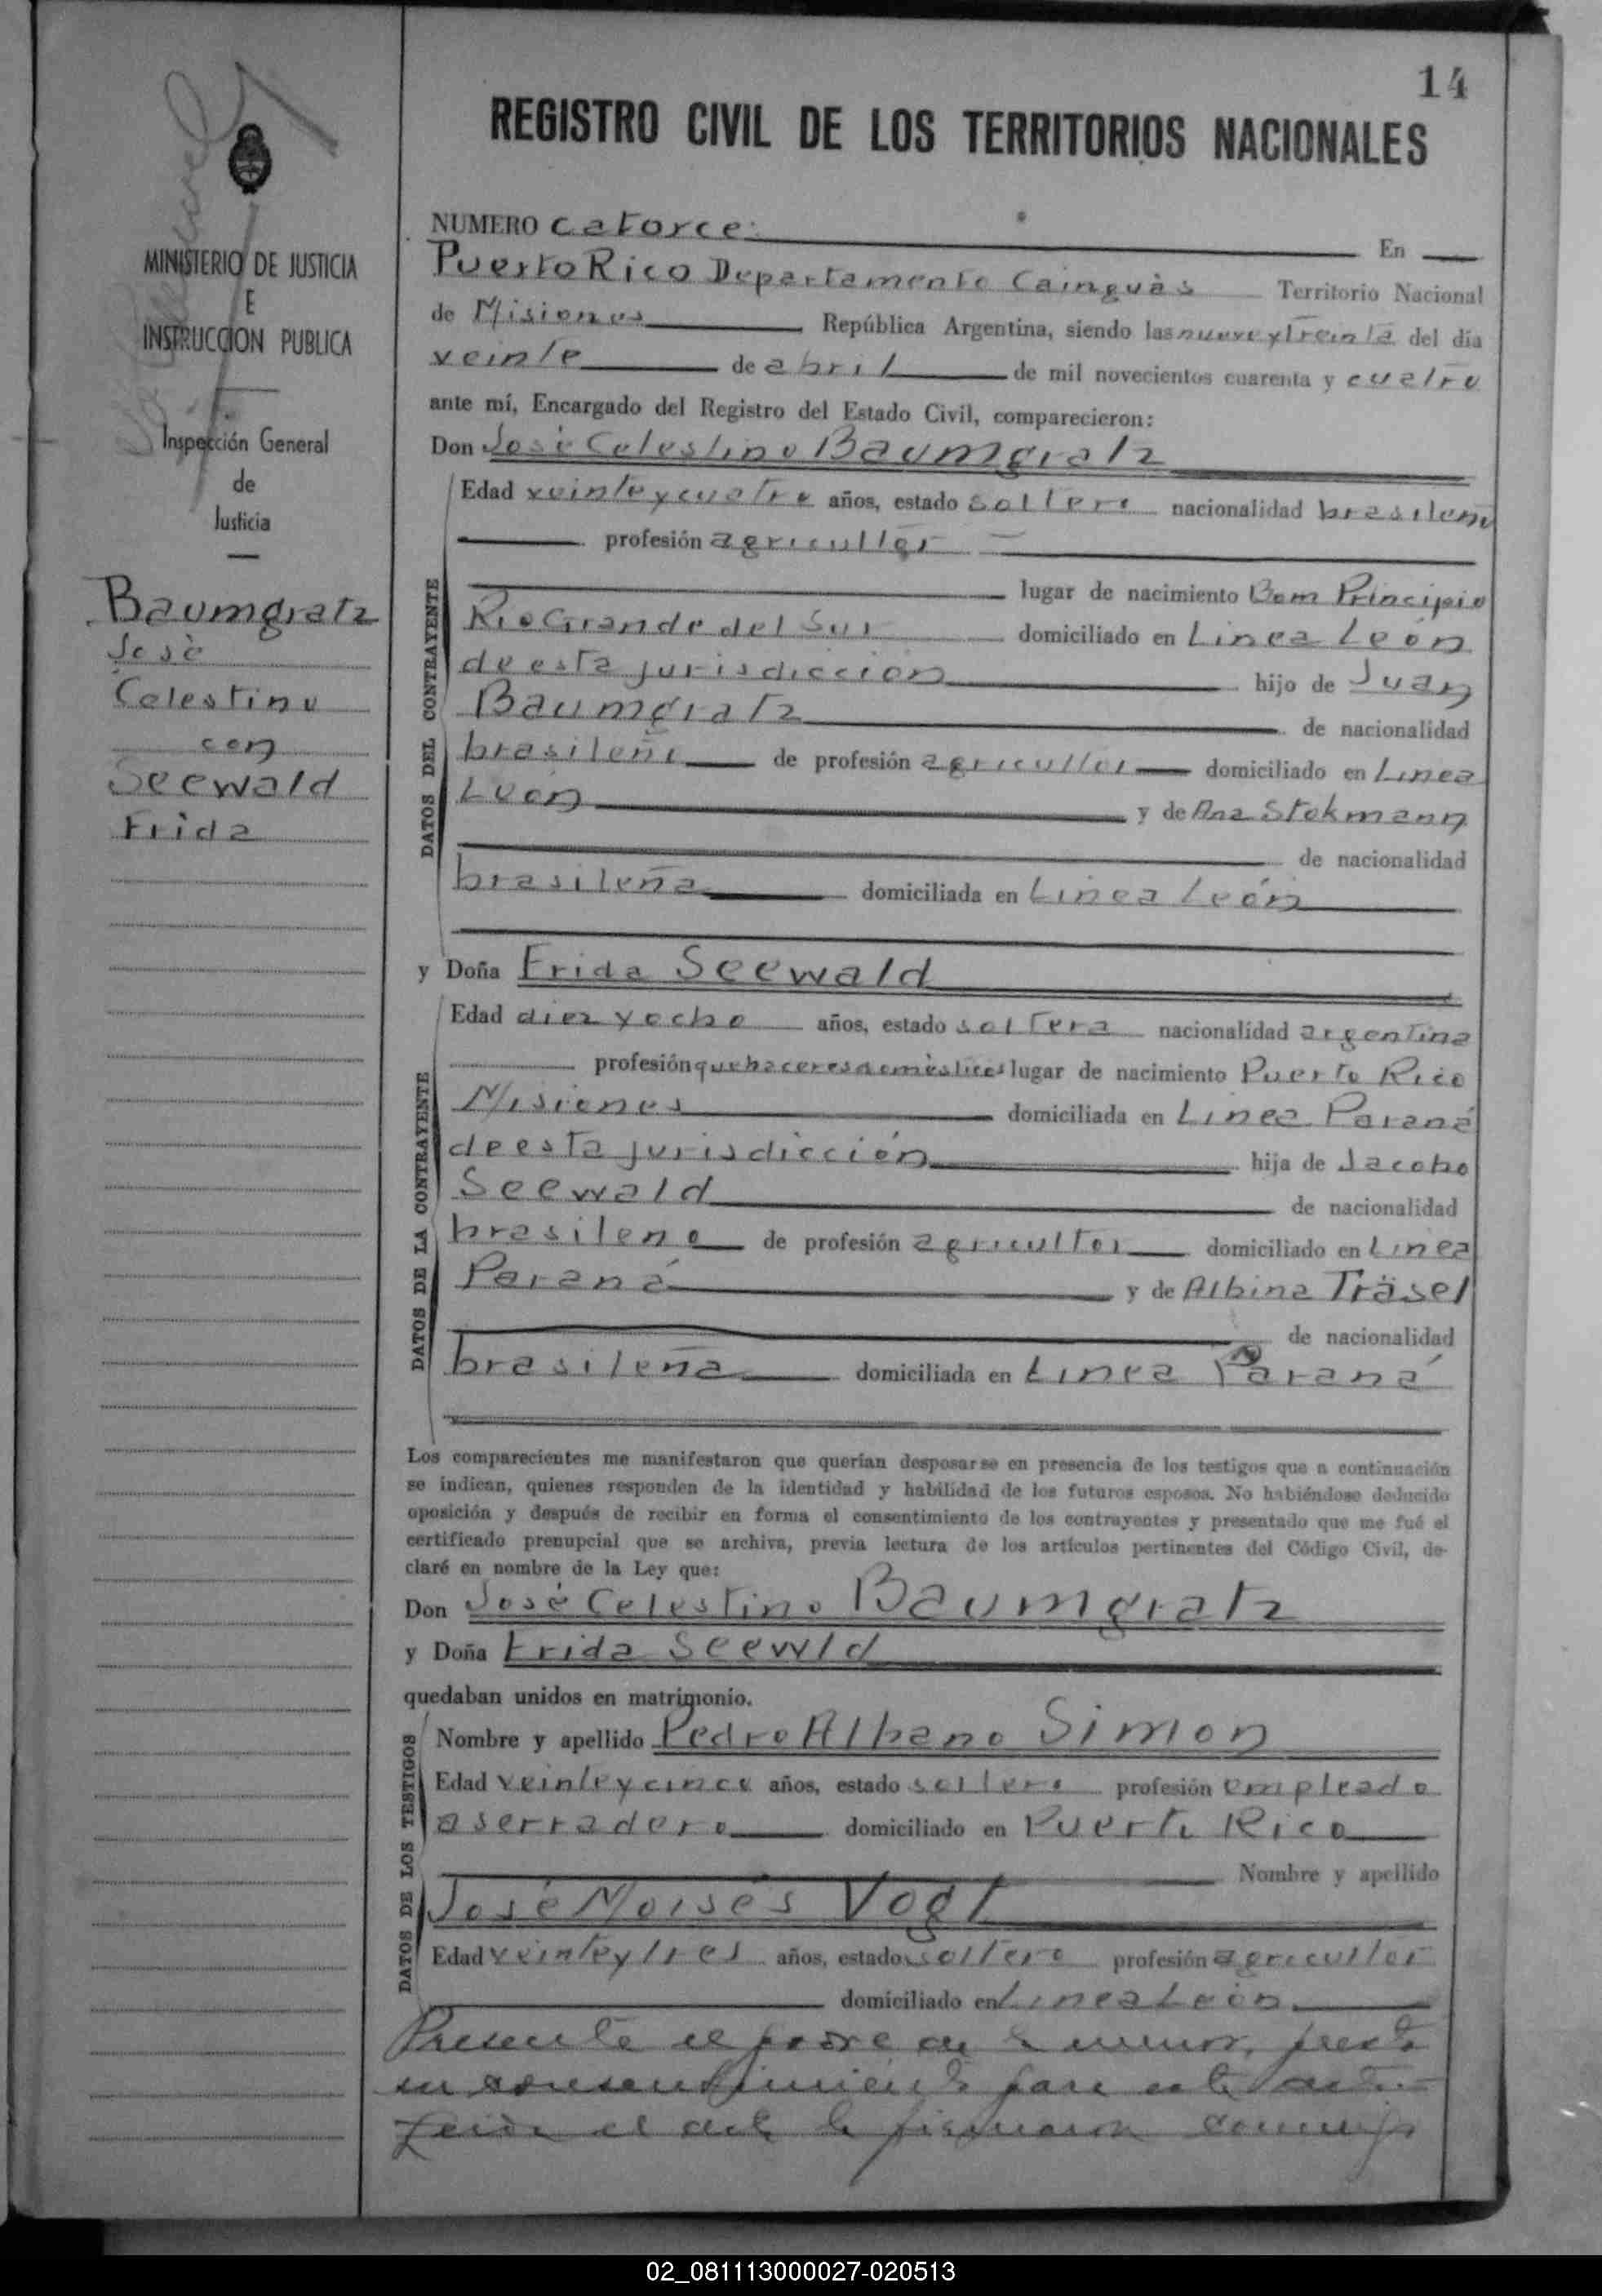 14
REGISTRO CIVIL DE LOS TERRITORIOS NACIONALES
MINISTERIO DE JUSTICIA
E
INSTRUCCION PUBLICA
Inspección General
de
Justicia
Baumgratz
José
Celestino
con
Seewald
Frida
NUMERO catorce: En
Puerto Rico Departamento Cainguàs Territorio Nacional
de Misiones República Argentina, siendo las nueve y treinta del día
veinte de abril de mil novecientos cuarenta y cuatro
ante mí, Encargado del Registro del Estado Civil, comparecieron:
Don José Celestino Baumgratz
Edad veinte y cuatro años, estado soltero nacionalidad brasileno
profesión agricultor
lugar de nacimiento Bom Principio
Rio Grande del Sur domiciliado en Linea León
de esta jurisdicción hijo de Juan
Baumgratz de nacionalidad
brasileño de profesión agricultor domiciliado en Linea
León y de Ana Stokmann
de nacionalidad
brasileña domiciliada en Linea León
y Doña Frida Seewald
Edad diez y ocho años, estado soltera nacionalidad argentina
profesión quehaceres domèsticos lugar de nacimiento Puerto Rico
Misiones domiciliada en Linea Paraná
de esta jurisdicción hija de Jacobo
Seewald de nacionalidad
brasileno de profesión agricultor domiciliado en Linea
Paraná y de Albina Träsel
de nacionalidad
brasileña domiciliada en Linea Paraná
Los comparecientes me manifestaron que querían desposarse en presencia de los testigos que a continuación
se indican, quienes responden de la identidad y habilidad de los futuros esposos. No habiéndose deducido
oposición y después de recibir en forma el consentimiento de los contrayentes y presentado que me fué el
certificado prenupcial que se archiva, previa lectura de los artículos pertinentes del Código Civil, de-
claré en nombre de la Ley que:
Don José Celestino Baumgratz
y Doña Frida Seewld
quedaban unidos en matrimonio.
Nombre y apellido Pedro Albano Simon
Edad veinte y cinco años, estado soltero profesión empleado
aserradero domiciliado en Puerto Rico
Nombre y apellido
José Moisés Vogt
Edad veinte y tres años, estado soltero profesión agricultor
domiciliado en Linea León
Presente el padre de la menor, presta
su consentimiento para este acto.-
Leida el acta la firmaron conmigo
DATOS DEL CONTRAYENTE
DATOS DE LA CONTRAYENTE
DATOS DE LOS TESTIGOS
02_081113000027-020513